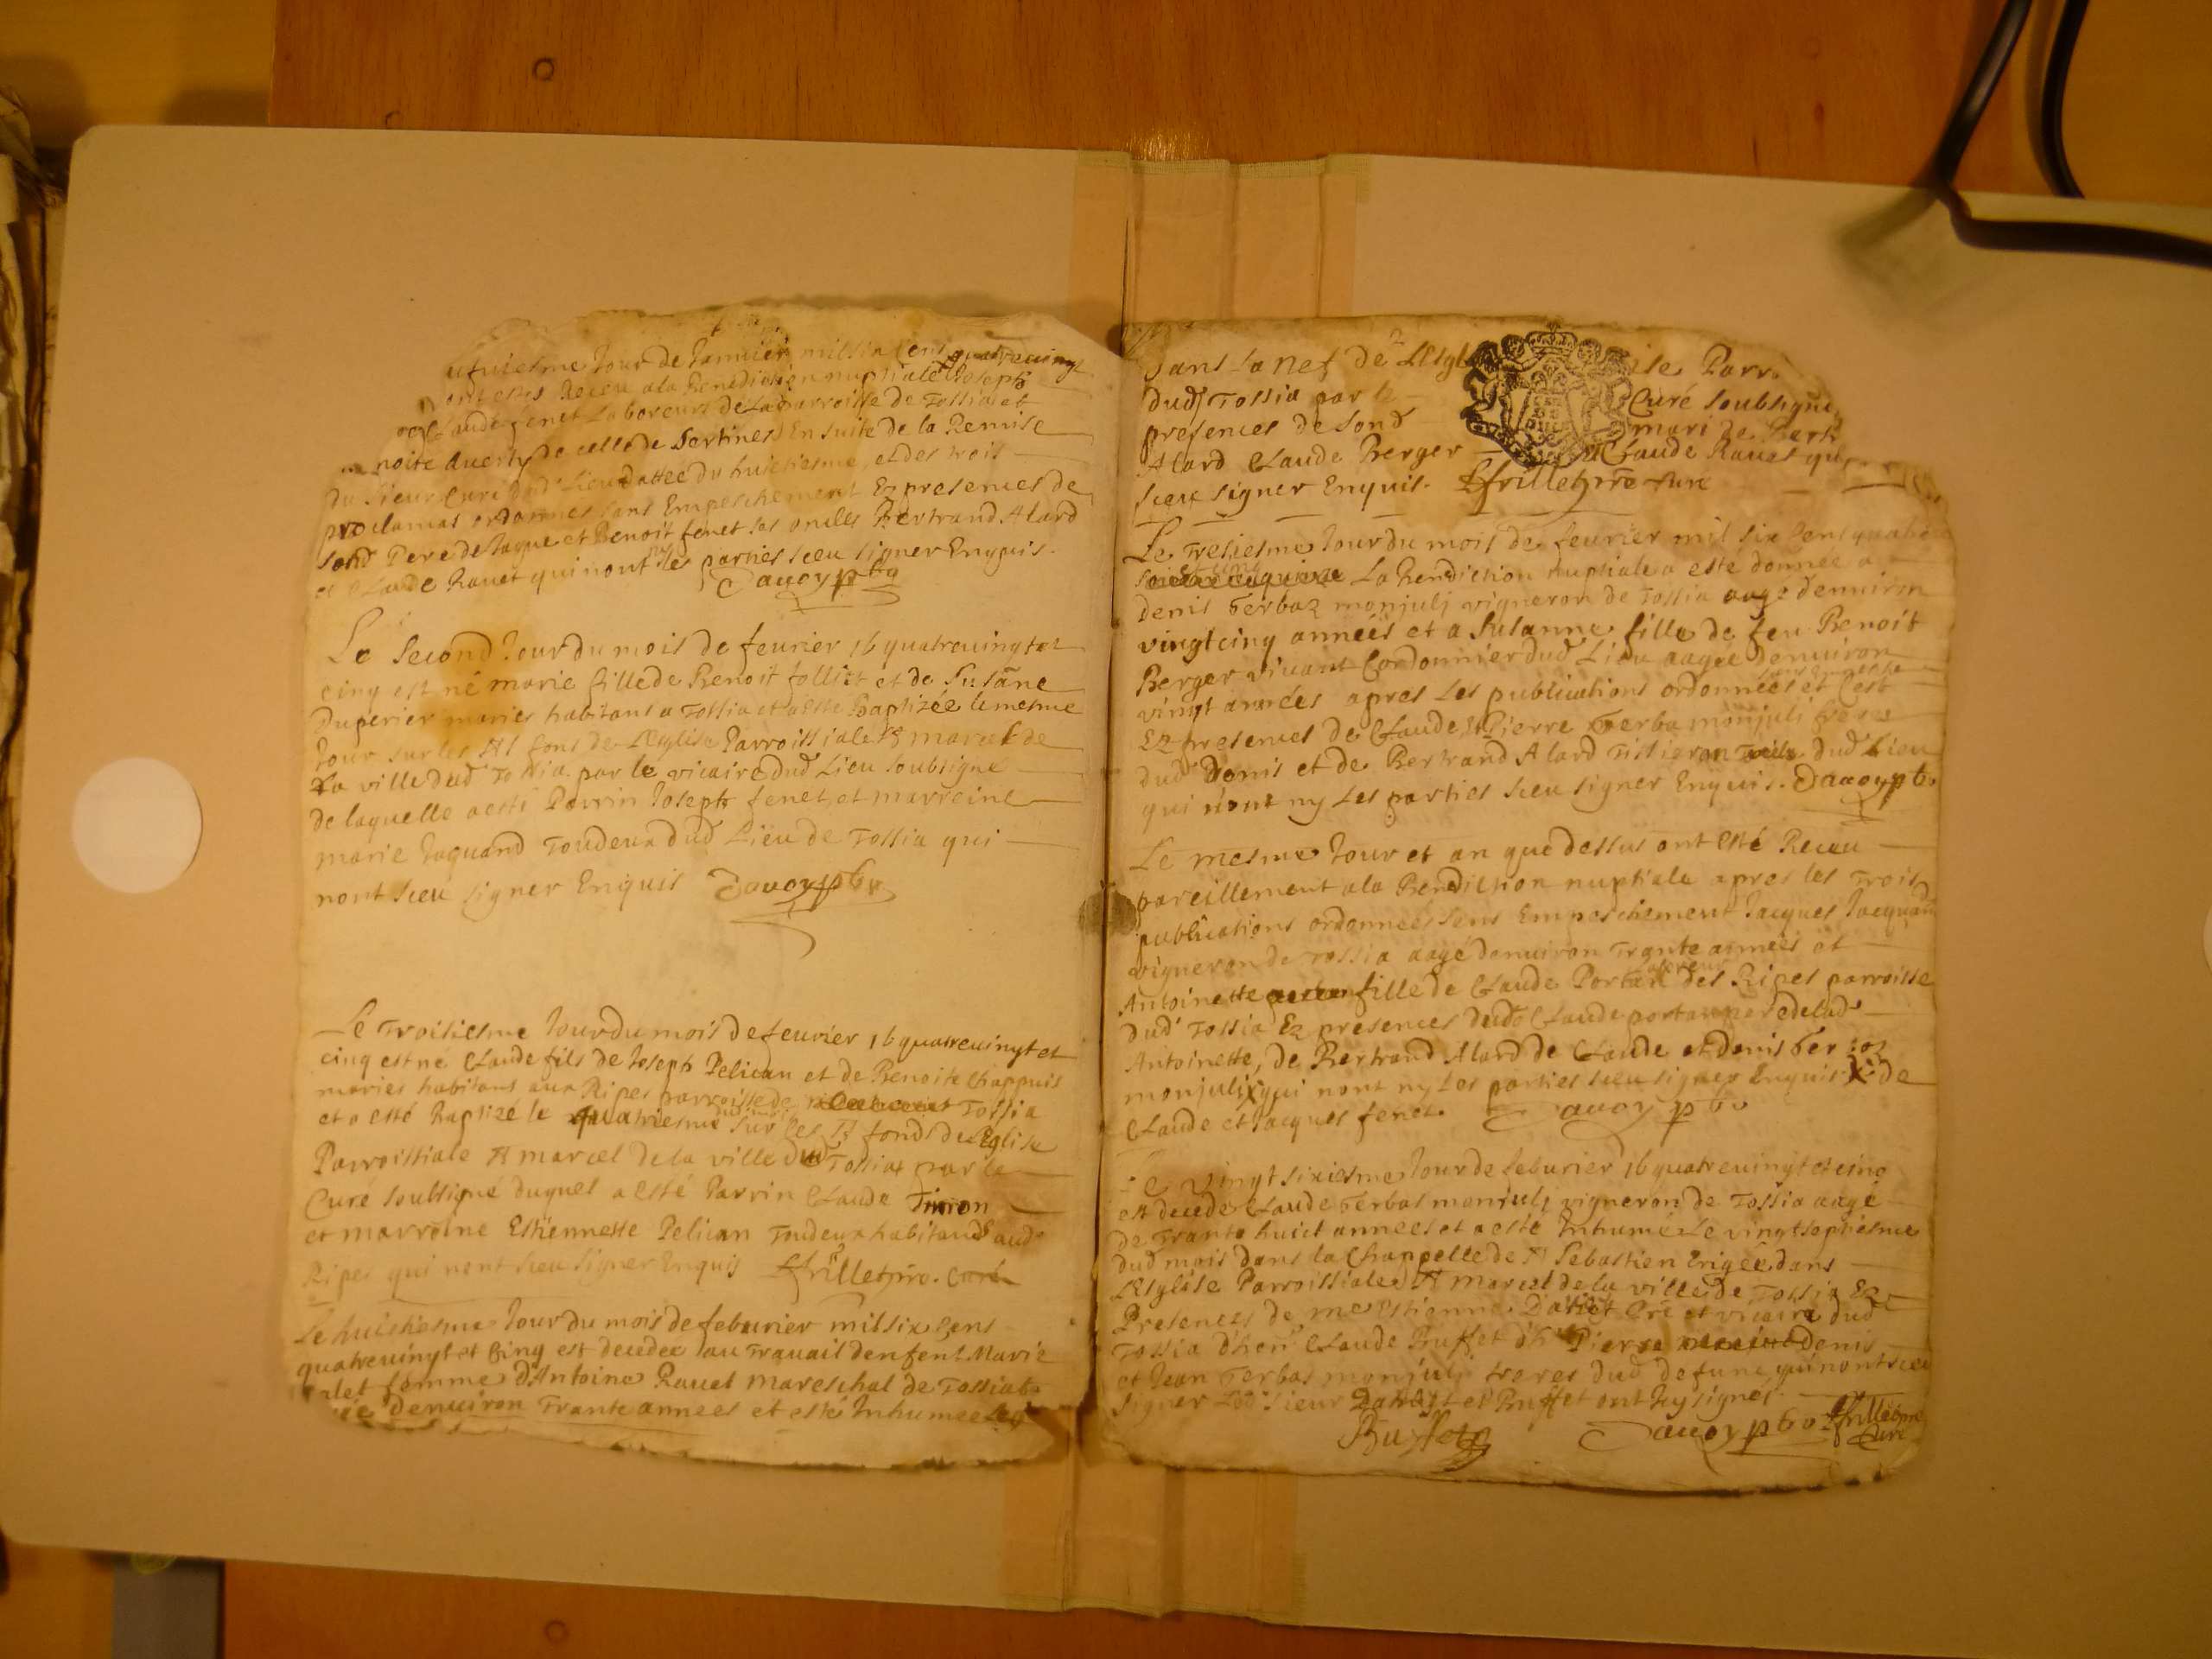 ufuiesme Jour de Januier mil six Cens quatreuingt
ont estes Receu a la Benediction nuptiale Joseph
Claude fenet Laboreurs de la parroisse de Tossia et
noite auerty de celle de Sertines En suite de la Remise
du Sieur Curé dud Lieu dattée du huictiesme, et des trois
proclamas ordonnes sans Empeschement Ez presences de
Sond Pere de Jaque et Benoit fenet ses oncles Bertrand Alard
et Claude Rauet qui nont ny les parties sceu signer Enquis.
Dauoy pbr
Le Second Jour du mois de feurier 16 quatreuingt et
cinq est né marie fille de Benoit folliet et de Susãne
Duperier maries habitans a Tossia et a esté Baptizée le mesme
Jour sur les St fons de L'Esglise Parroissiale St marcel de
La ville dud Tossia par le vicaire dud Lieu soubsigné
de laquelle a esté Parrin Joseph fenet et marreine
marie Jaquand Toudeux dud Lieu de Tossia qui
nont sceu signer Enquis Dauoy pbr
Le Troisiesme Jour du mois de feurier 16 quatreuingt et
cinq est né Claude fils de Joseph Pelican et de Benoite Chappuis
maries habitans aux Ripes parroisse de Tossia
et a esté Baptizé le quatriesme sur les St fonds de L'Eglise
Parroissiale St marcel de la ville dud Tossia par le
Curé soubsigné duquel a esté Parrin Claude
et marreine Estiennette Pelican Toudeux habitans aud
Ripes qui nont sceu signer Enquis ffrillet pre. Curé
Le huictiesme Jour du mois de feburier mil six Cens
quatreuingt et Cinq est decedee au Trauail denfent Marie
femme d'Antoine Rauet mareschal de Tossia
denuiron Trante annees et esté Inhumee
dans la nef de L'Esglise Parr
dud Tossia par le Curé soubsigné
presences de sond mari de Bert
Alard Claude Berger Claude Rauet qu
sceu signer Enquis. ffrillet pre Cure
Le Tresiesme Jour du mois de feurier mil six Cens quatre
La Bendiction nuptiale a esté donnée a
denis Ferbaz monjuli vigneron de Tossia aagé denuiron
vingt cinq années et a Susanne fille de feu Benoit
Berger viuant Cordonnier dud Lieu aagée denuiron
vingt années apres les publications ordonnées et
Ez presences de Claude et Pierre Ferba monjuli freres
dud Denis et de Bertrand Alard dud Lieu
qui nont ny Les parties sceu signer Enquis. Dauoy pb.
Le mesme Jour et an que dessus ont Esté Receu
pareillement a la Bendiction nuptiale apres les Trois
publications ordonnees sens Empeschement Jacques Jacquand
vigneron de Tossia aagé denuiron Trante années et
Antoinette fille de Claude Portan des Ripes parroisse
dud Tossia Ez presences dud Claude portan pere de lad
Antoinette, de Bertrand Alard de Claude et denis Ferbaz
monjuli qui nont ny Les parties sceu signer Enquis X de
Claude et Jacques fenet. Dauoy pb.
Le vingt sixiesme Jour de feburier 16 quatreuingt et cinq
est decede Claude Ferbas monjulj vigneron de Tossia aagé
de Trante huict annees et a esté Inhumé Le vingt septiesme
dud mois dans la Chappelle de St Sebastien Erigée dans
L'Esglise Parroissiale St marcel de la ville de Tossia Ez
Presences de me Estienne pre et vicaire dud
Tossia d'hon Claude Buffet d'h Pierre Denis
et Jean Ferbas monjuli freres dud defunct qui nont sceu
signer Led sieur et Buffet ont Icy signés.
Buffet Dauoy pbr ffrillet pre
Curé